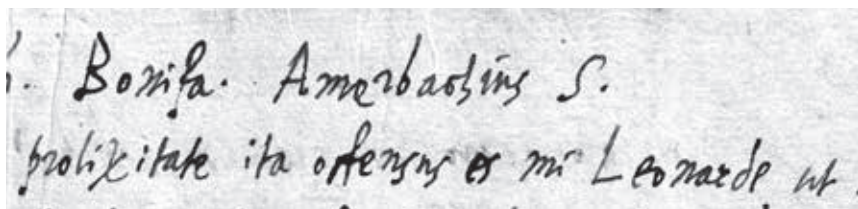 . Bonifa. Amerbachius S.
prolixitate ita offensus es mi Leonarde ut